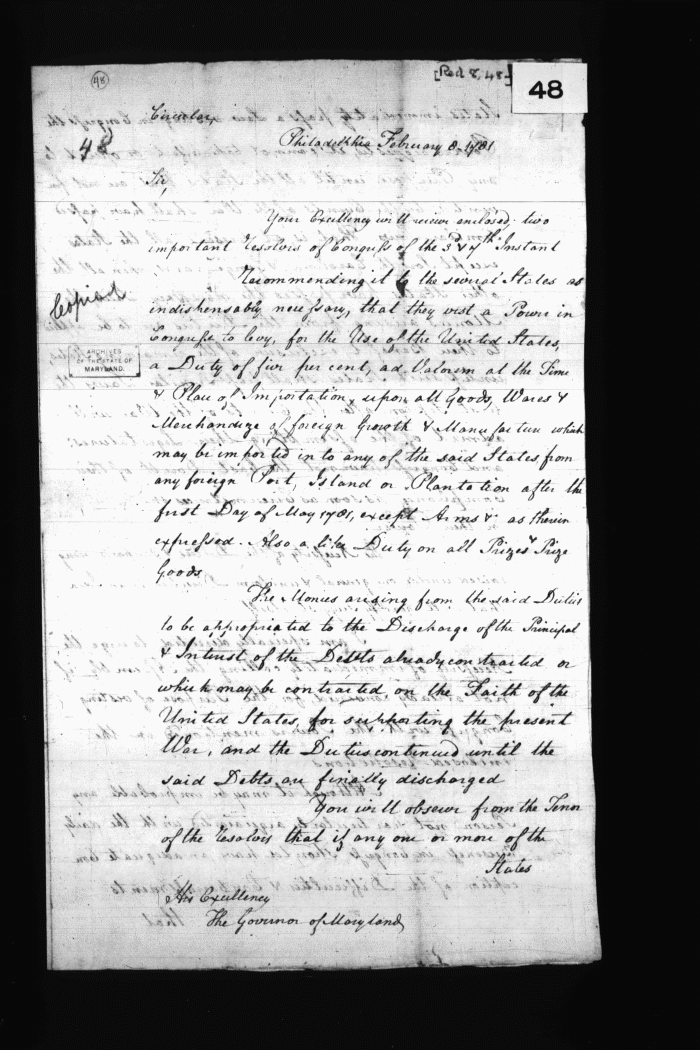 48
[Red 8, 48-]
48
Circular,
48
Philadelphia February 8. 1781
Sir,
Your Excellency will receive enclosed two
important Resolves of Congress of the 3d & 7th Instant
Recommending it to the several States as
indispensably necessary, that they vest a Power in
Copied
Congress to levy, for the Use of the United States,
ARCHIVES
OF THE STATE OF
MARYLAND.
a Duty of five per cent, ad Valorem at the Time
& Place of Importation, upon all Goods, Wares &
Merchandize of foreign Growth & Manufacture which
may be imported into any of the said States from
any foreign Port, Island or Plantation after the
first Day of May 1781, except Arms & as therein
expressed. Also a like Duty on all Prizes & Prize
Goods
The Monies arising from the said Duties
to be appropriated to the Discharge of the Principal
& Interest of the Debts already contracted or
which may be contracted on the Faith of the
United States, for supporting the present
War, and the Duties continued until the
said Debts are finally discharged
You will observe from the Tenor
of the Resolves that if any one or more of the
States
His Excellency
The Governor of Maryland